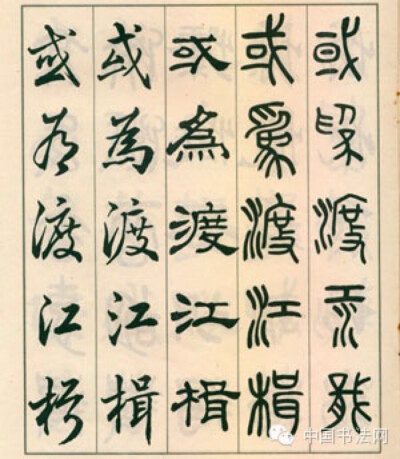 或為渡江楫
或為渡江楫
或為渡江楫
或為渡江楫
或為渡江楫
中国书法网